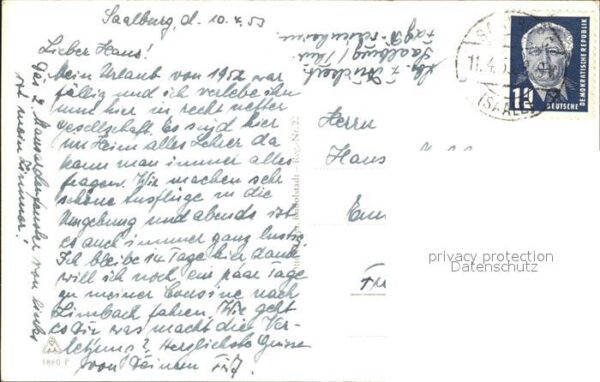 Saalburg, d. 10.4.53
Lieber Hans!
Mein Urlaub von 1952 war
fällig und ich verlebe ihn
nun hier in recht netter
Gesellschaft. Es sind hier
im Heim alles Lehrer da
kann man immer alles
fragen. Wir machen sehr
schöne Ausflüge in die
Umgebung und abends ist
es auch immer ganz lustig.
Ich bleibe 14 Tage hier dann
will ich noch ein paar Tage
zu meiner Cousine nach
Limbach fahren. Wie geht
es Dir was macht die Ver-
letzung? Herzlichste Grüsse
von Deinem
Das 2. Mansardenfenster von links
ist mein Zimmer!
Saalburg / Thür.
Herrn
Hans
12
DEUTSCHE
DEMOKRATISCHE REPUBLIK
11.4.5
(SAALE)
Reg.-Nr. 22
privacy protection
Datenschutz
1880 F